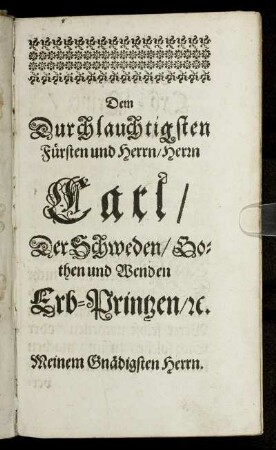 Dem
Durchlauchtigsten
Fürsten und Herrn/Herrn
Carl/
Der Schweden/Go-
then und Wenden
Erb-Printzen/ꝛc.
Meinem Gnädigsten Herrn.